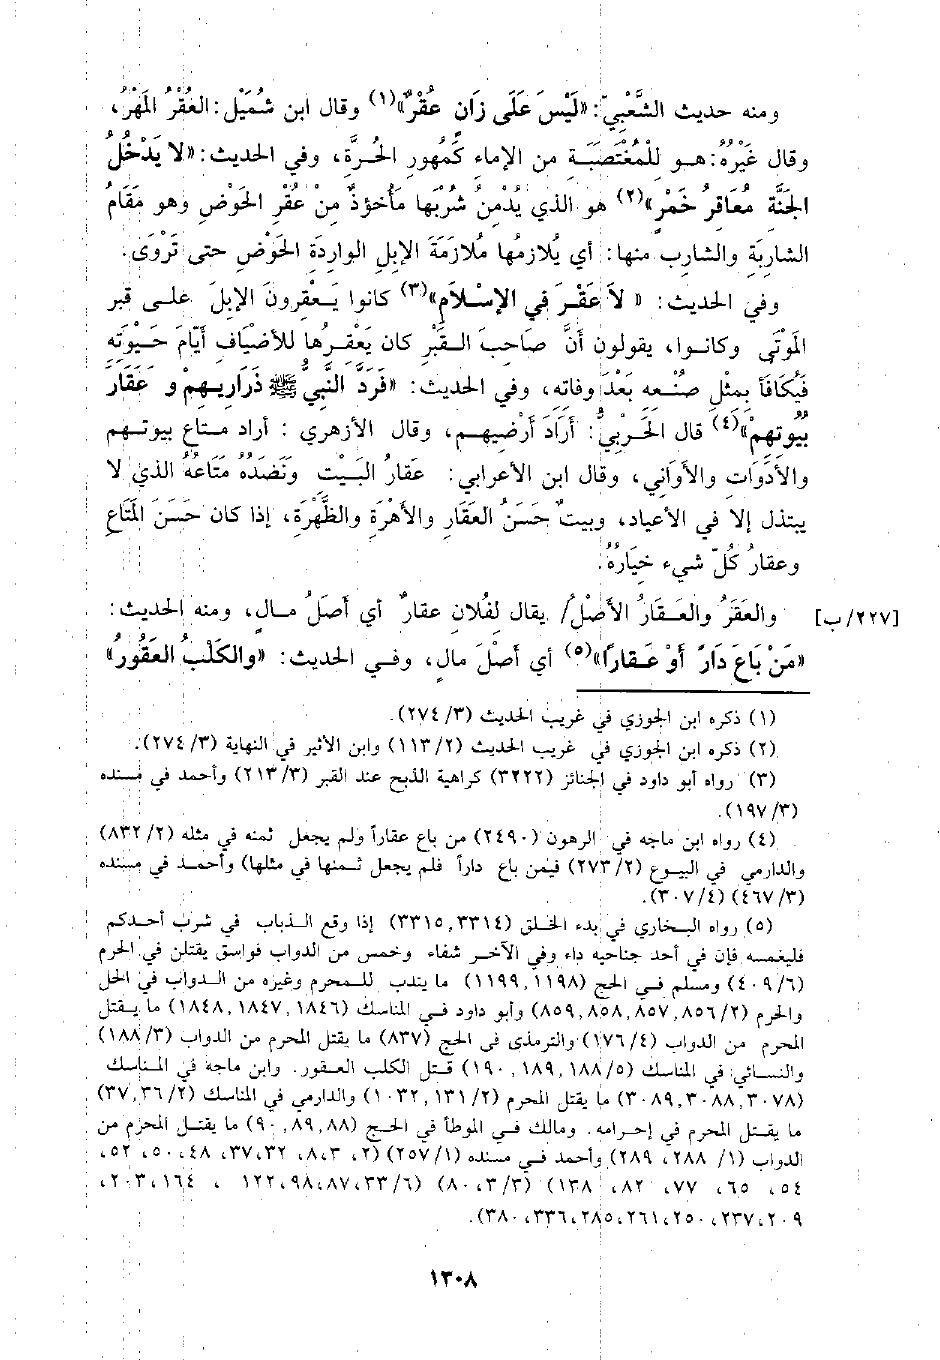 ومنه حديث الشَّعْبِيّ: «لَيْسَ عَلَى زَانٍ عُقْرٌ»(١) وقال ابن شُمَيْل: العُقْرُ المَهْرُ،
وقال غَيْرُهُ: هـو للمُغْتَصَبَةِ من الإماء كَمُهورِ الحُرَّةِ، وفي الحديث: «لا يَدْخُلُ
الجَنَّة مُعَاقِرُ خَمْرٍ»(٢) هو الذي يُدْمنُ شُرْبَها مَأْخوذٌ مِنْ عُقْرِ الحَوْضِ وهو مَقَامُ
الشارِبَةِ والشارب منها: أي يُلازِمُها مُلازَمَةَ الإبلِ الوارِدَةِ الحَوْضِ حتى تَرْوَى.
وفي الحديث: « لاَ عَقْرَ في الإسْلاَمِ»(٣) كانوا يَعْقِرونَ الإبِلَ على قبر
المَوْتَى وكانوا، يقولون أنَّ صاحبَ القَبْرِ كان يَعْقِرُها للأضْيافِ أيّامَ حَيوتَهِ
فَيُكَافَأُ بِمثْلِ صُنْعه بَعْدَ وفاته، وفي الحديث: «فَرَدَّ النَّبيُّ ﷺ ذَرَاريهمْ و عَقَارَ
بُيُوتهمْ»(٤) قال الحَرْبِيُّ: أَرَادَ أَرْضِيهم، وقال الأزهري : أراد متاع بيوتهم
والأدَوات والأواَني، وقال ابن الأعرابي: عَقارُ البَيْت ونَضَدُه مَتَاعُهُ الذي لا
يبتذل إلا في الأعياد، وبيتٌ حَسَنُ العَقَار والأهْرَةِ والظَّهْرَةِ، إذا كان حَسَنَ المَتَاعِ
وعقارُ كُلّ شيء خيَارُهُ.
والعَقَرُ والعَقَارُ الأصْلُ/ يقال لفُلان عقارٌ أي أصَلُ مـال، ومنه الحديث: [٢٢٧/ب]
«مَنْ بَاعَ دَارً أوْ عَقارًا»(٥) أي أصْلَ مالٍ، وفي الحديث: «والكَلْبُ العَقُورُ»
(١) ذكره ابن الجوزي في غريب الحديث (٣/ ٢٧٤).
(٢) ذكره ابن الجوزي في غريب الحديث (٢/ ١١٣) وابن الأثير في النهاية (٣/ ٢٧٤).
(٣) رواه أبو داود في الجنائز (٣٢٢٢) كراهية الذبح عند القبر (٣/ ٢١٣) وأحمد في مسنده
(٣/ ١٩٧).
(٤) رواه ابن ماجه في الرهون (٢٤٩٠) من باع عقاراً ولم يجعل ثمنه في مثله (٢/ ٨٣٢)
والدارمي في البيوع (٢/ ٢٧٣) فيمن باع داراً فلم يجعل ثمنها في مثلها) وأحمد في مسنده
(٣/ ٤٦٧) (٤/ ٣٠٧).
(٥) رواه البخاري في بدء الخلق (٣٣١٤, ٣٣١٥) إذا وقع الذباب في شرب أحدكم
فليغمسه فإن في أحد جناحيه داء وفي الآخر شفاء وخمس من الدواب فواسق يقتلن في الحرم
(٦/ ٤٠٩) ومسلم في الحج (١١٩٨, ١١٩٩) ما يندب للمحرم وغيره من الدواب في الحل
والحرم (٢/ ٨٥٦, ٨٥٧, ٨٥٨, ٨٥٩) وأبو داود في المناسك (١٨٤٦, ١٨٤٧, ١٨٤٨) ما يقتل
المحرم من الدواب (٤/ ١٧٦) والترمذى فى الحج (٨٣٧) ما يقتل المحرم من الدواب (٣/ ١٨٨)
والنسائي في المناسك (٥/ ١٨٨, ١٨٩, ١٩٠) قتل الكلب العقور. وابن ماجة في المناسك
(٣٠٧٨, ٣٠٨٨, ٣٠٨٩) ما يقتل المحرم (٢/ ١٣١, ١٠٣٢) والدارمي في المناسك (٢/ ٣٦, ٣٧)
ما يقتل المحرم في إحرامه. ومالك في الموطأ في الحج (٨٨, ٨٩, ٩٠) ما يقتل المحرم من
الدواب (١/ ٢٥٧) وأحمد في مسنده (١/ ٢٨٨, ٢٨٩) (٢, ٣، ٨، ٣٢، ٣٧، ٤٨، ٥٠، ٥٢،
٥٤، ٦٥، ٧٧، ٨٢، ١٣٨) (٣/ ٣، ٨٠) (٦/ ٣٣، ٨٧، ٩٨، ١٢٢ ، ١٦٤، ٢٠٣،
٢٠٩، ٢٣٧، ٢٥٠، ٢٦١، ٢٨٥، ٣٣٦، ٣٨٠).
١٣٠٨